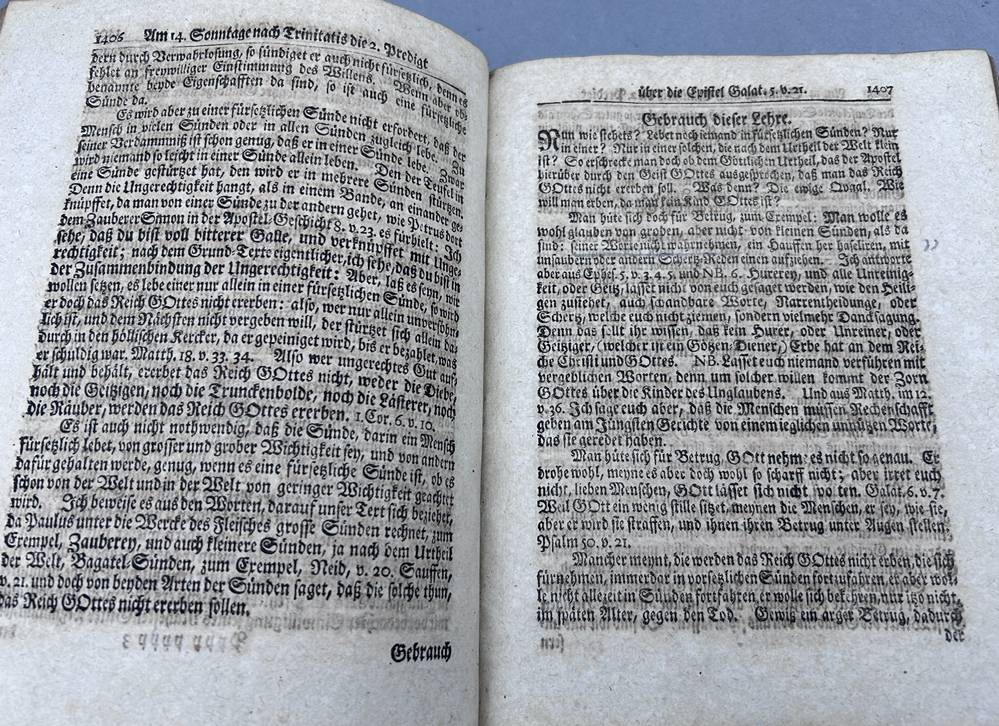 1406 Am 14. Sonntage nach Trinitatis die 2. Predigt
dern durch Verwahrlosung, so sündiget er auch nicht fürsetzlich, denn es
fehlet an freywilliger Einstimmung des Willens. Wenn aber ob-
benannte beyde Eigenschafften da sind, so ist auch eine fürsetzliche
Sünde da.
Es wird aber zu einer fürsetzlichen Sünde nicht erfordert, daß der
Mensch in vielen Sünden oder in allen Sünden zugleich lebe. Zu
seiner Verdammniß ist schon genug, daß er in einer Sünde lebe. Zwar
wird niemand so leicht in einer Sünde allein leben. Den der Teufel in
eine Sünde gestürtzt hat, den wird er in mehrere Sünden stürtzen.
Denn die Ungerechtigkeit hangt, als in einem Bande, an einander ge-
knüpffet, da man von einer Sünde zu der andern gehet, wie Petrus dort
dem Zauberer Simon in der Apostel-Geschicht 8. v. 23. es fürhielt: Ich
sehe, daß du bist voll bitterer Galle, und verknüpffet mit Unge-
rechtigkeit; nach dem Grund-Texte eigentlicher, ich sehe, daß du bist in
der Zusammenbindung der Ungerechtigkeit: Aber, laß es seyn, wir
wollen setzen, es lebe einer nur allein in einer fürsetzlichen Sünde, so wird
er doch das Reich GOttes nicht ererben: also, wer nur allein unversöhn-
lich ist, und dem Nächsten nicht vergeben will, der stürtzet sich allein da-
durch in den höllischen Kercker, da er gepeiniget wird, bis er bezahlet, was
er schuldig war. Matth. 18. v. 33. 34. Also wer ungerechtes Gut auf-
hält und behält, ererbet das Reich GOttes nicht, weder die Diebe,
noch die Geitzigen, noch die Trunckenbolde, noch die Lästerer, noch
die Räuber, werden das Reich GOttes ererben. 1. Cor. 6. v. 10.
Es ist auch nicht nothwendig, daß die Sünde, darin ein Mensch
fürsetzlich lebet, von grosser und grober Wichtigkeit sey, und von andern
dafür gehalten werde, genug, wenn es eine fürsetzliche Sünde ist, ob es
schon von der Welt und in der Welt von geringer Wichtigkeit geachtet
wird. Ich beweise es aus den Worten, darauf unser Text sich beziehet,
da Paulus unter die Wercke des Fleisches grosse Sünden rechnet, zum
Exempel, Zauberey, und auch kleinere Sünden, ja nach dem Urtheil
der Welt, Bagatel-Sünden, zum Exempel, Neid, v. 20. Sauffen,
v. 21. und doch von beyden Arten der Sünden saget, daß die solche thun,
das Reich GOttes nicht ererben sollen.
Gebrauch
über die Epistel Galat. 5. v. 21. 1407
Gebrauch dieser Lehre.
Nun wie stehets? Lebet noch iemand in fürsetzlichen Sünden? Nur
in einer? Nur in einer solchen, die nach dem Urtheil der Welt klein
ist? So erschrecke man doch ob dem Göttlichen Urtheil, das der Apostel
hierüber durch den Geist GOttes ausgesprochen, daß man das Reich
GOttes nicht ererben soll. Was denn? Die ewige Qvaal. Wie
will man erben, da man kein Kind GOttes ist?
Man hüte sich doch für Betrug, zum Exempel: Man wolle es
wohl glauben von groben, aber nicht von kleinen Sünden, als da
sind: seiner Worte nicht wahrnehmen, ein Hauffen her haseliren, mit
unsaubern oder andern Schertz-Reden einen aufziehen. Ich antworte
aber aus Ephes. 5. v. 3. 4. 5. und NB. 6. Hurerey, und alle Unreinig-
keit, oder Geitz, lasset nicht von euch gesaget werden, wie den Heili-
gen zustehet, auch schandbare Worte, Narrentheidunge, oder
Schertz, welche euch nicht ziemen, sondern vielmehr Dancksagung.
Denn das sollt ihr wissen, daß kein Hurer, oder Unreiner, oder
Geitziger, (welcher ist ein Götzen-Diener,) Erbe hat an dem Rei-
che Christi und GOttes. NB. Lasset euch niemand verführen mit
vergeblichen Worten, denn um solcher willen kommt der Zorn
GOttes über die Kinder des Unglaubens. Und aus Matth. im 12.
v. 36. Ich sage euch aber, daß die Menschen müssen Rechenschafft
geben am Jüngsten Gerichte von einem ieglichen unnützen Worte,
das sie geredet haben.
Man hüte sich für Betrug, GOtt nehme es nicht so genau. Er
drohe wohl, meyne es aber doch wohl so scharff nicht; aber irret euch
nicht, lieben Menschen, GOtt lässet sich nicht spotten. Galat. 6. v. 7.
Weil GOtt ein wenig stille sitzet, meynen die Menschen, er sey, wie sie,
aber er wird sie straffen, und ihnen ihren Betrug unter Augen stellen.
Psalm 50. v. 21.
Mancher meynt, die werden das Reich GOttes nicht erben, die sich
fürnehmen, immerdar in vorsetzlichen Sünden fortzufahren, er aber wol-
le nicht allezeit in Sünden fortfahren, er wolle sich bekehren, nur itzo nicht,
im späten Alter, gegen den Tod. Gewiß ein arger Betrug, dadurch
der